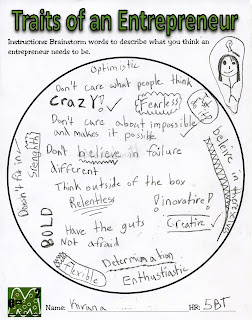 Traits of an Entrepreneur
Instructions: Brainstorm words to describe what you think an
entrepreneur needs to be.
Optimistic
Don't care what people think
CRAZY!
Fearless
Don't care about impossible
and makes it possible
Dont believe in failure
different
Think outside of the box
Relentless
! inovative!
BOLD
Have the guts
Creative
Not afraid
Determination
Flexible
Enthustiastic
Doesn't fit in
Strenght!
beleive in
Name:
HR: 5BT